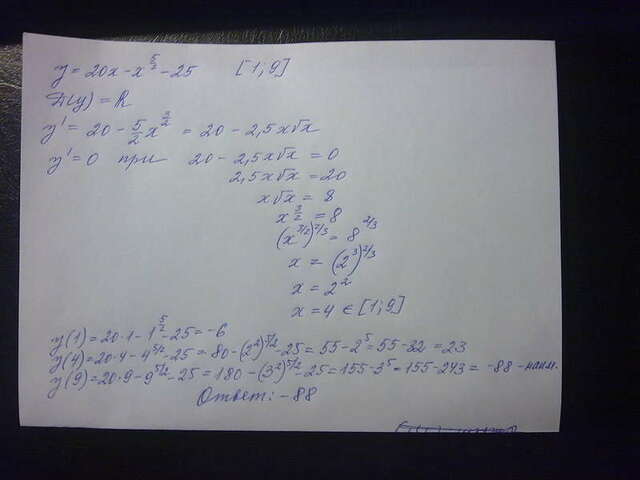 y = 20x - x^(5/2) - 25 [1; 9]
D(y) = R
y' = 20 - 5/2 x^(3/2) = 20 - 2,5x√x
y' = 0 при 20 - 2,5x√x = 0
2,5x√x = 20
x√x = 8
x^(3/2) = 8
(x^(3/2))^(2/3) = 8^(2/3)
x = (2^3)^(2/3)
x = 2^2
x = 4 ∈ [1; 9]
y(1) = 20·1 - 1^(5/2) - 25 = -6
y(4) = 20·4 - 4^(5/2) - 25 = 80 - (2^2)^(5/2) - 25 = 55 - 2^5 = 55 - 32 = 23
y(9) = 20·9 - 9^(5/2) - 25 = 180 - (3^2)^(5/2) - 25 = 155 - 3^5 = 155 - 243 = -88 - наим.
Ответ: -88